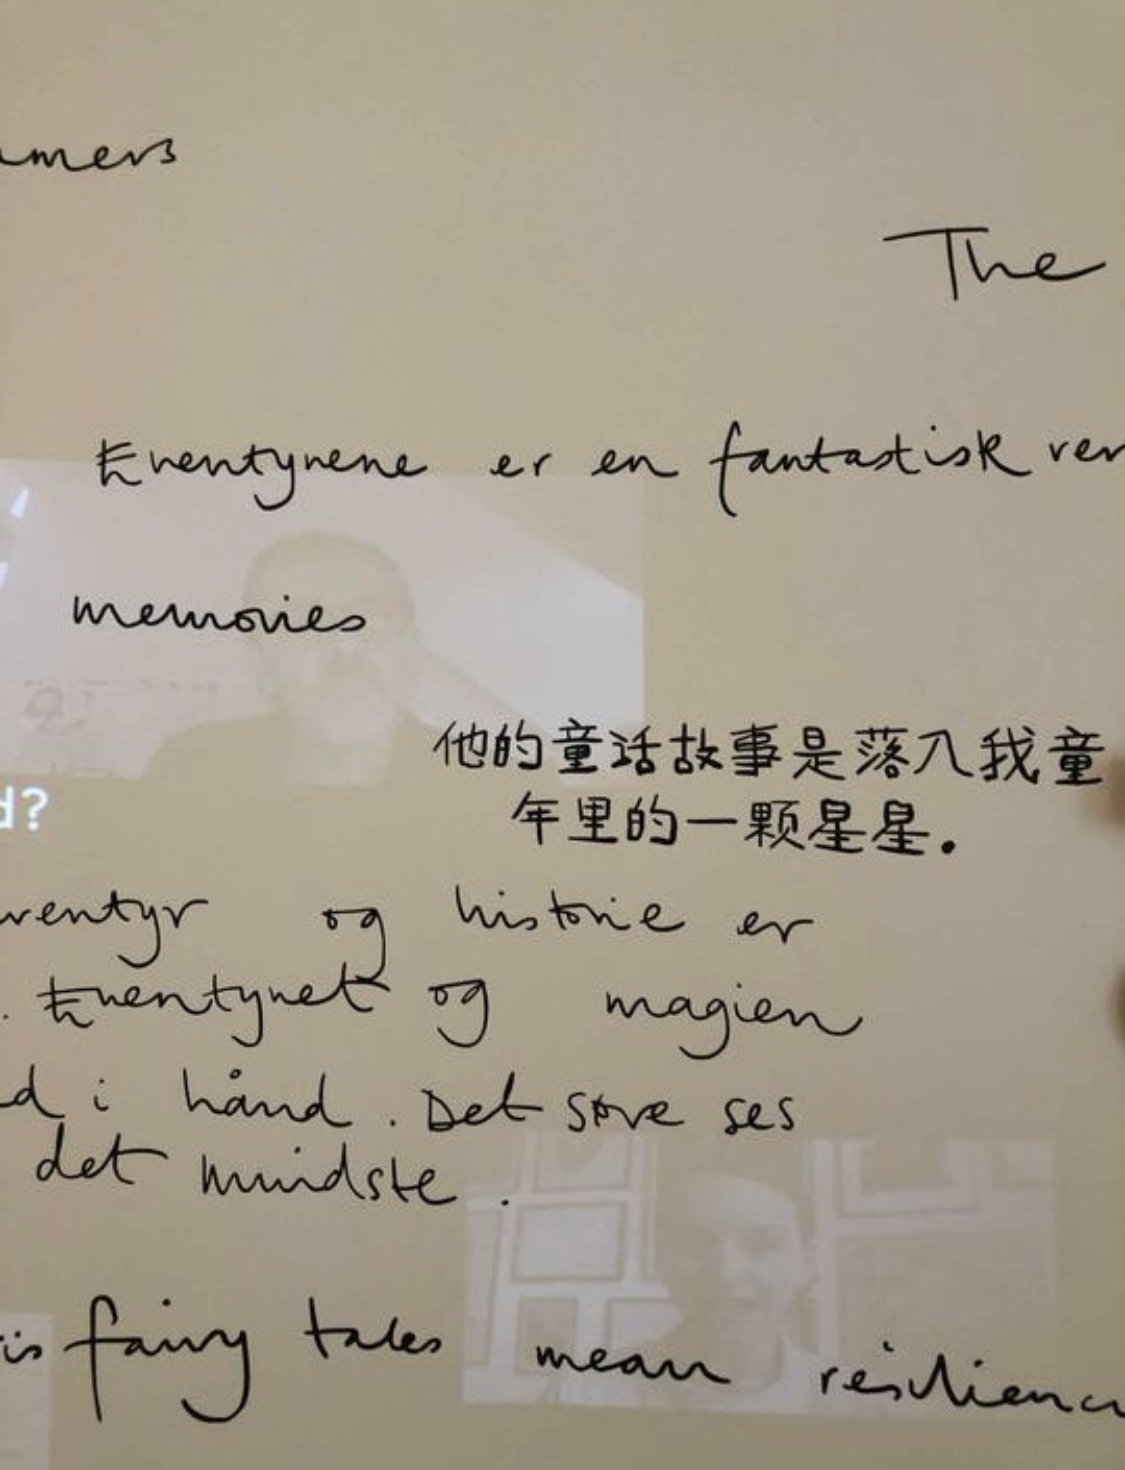 amers
The
Eventyrene er en fantastisk ver
memories
他的童话故事是落入我童
年里的一颗星星.
d?
ventyr og historie er
. Eventyret og magien
d i hånd. Det støre ses
det mindste.
is fairy tales mean resilienc